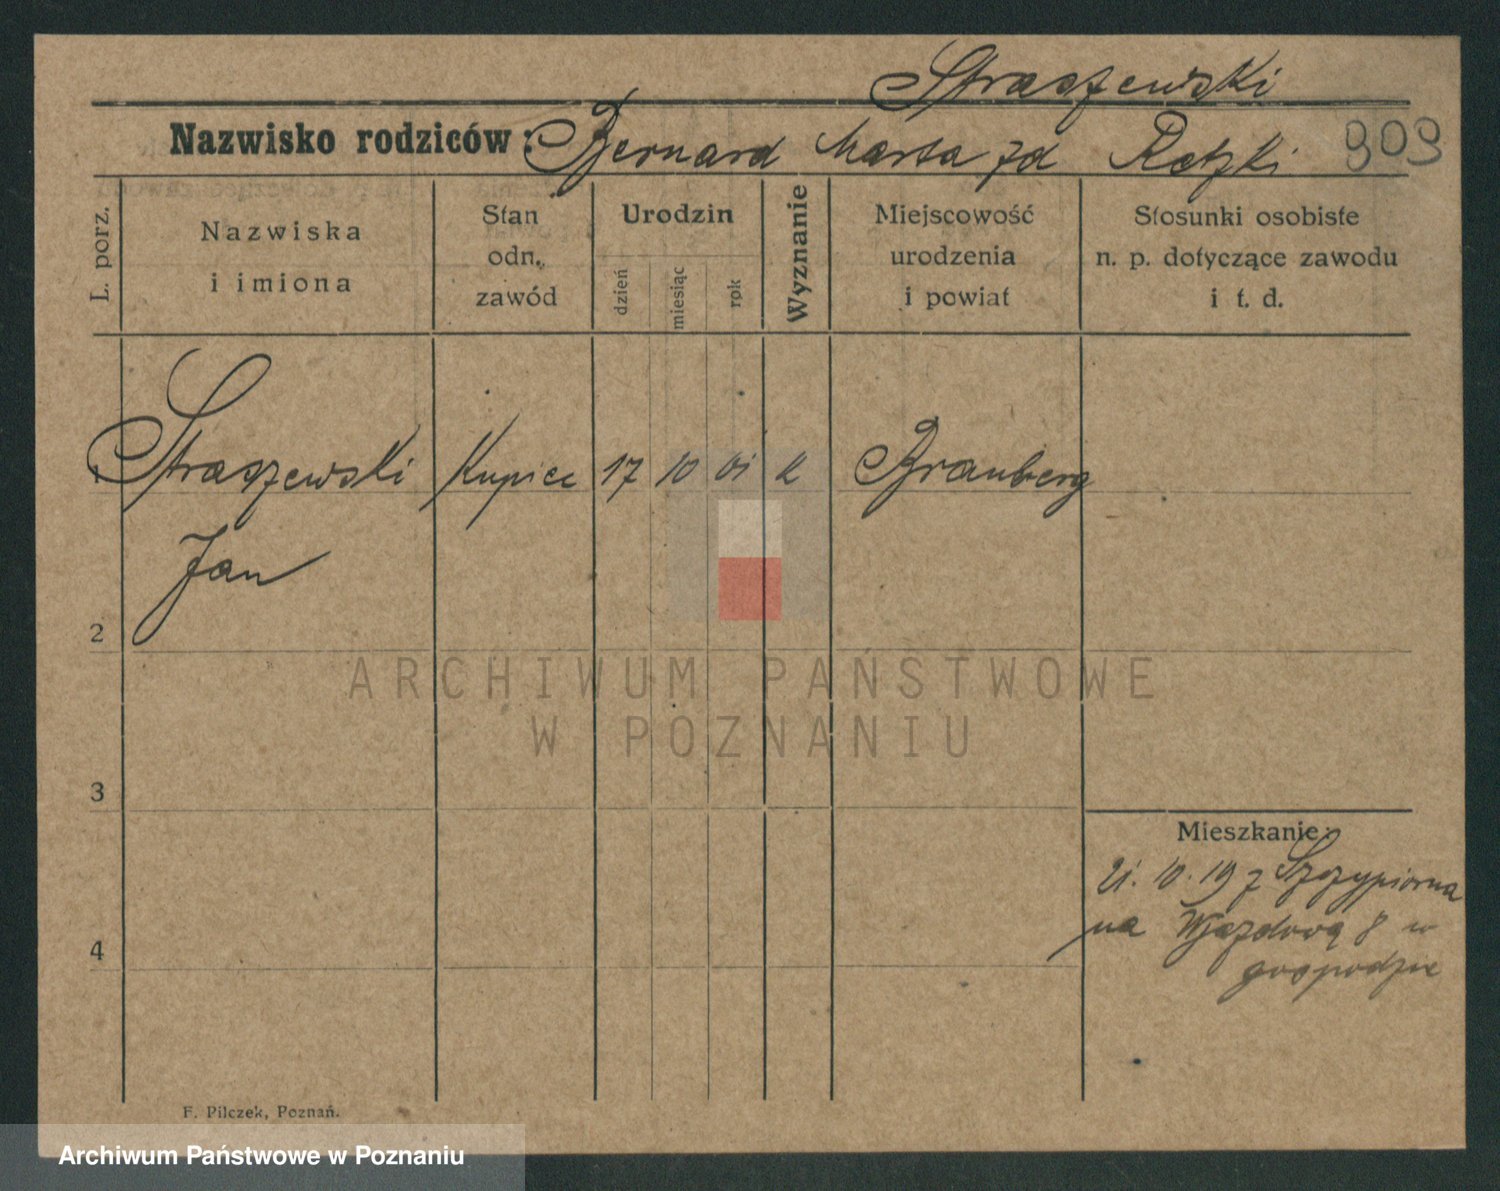 Straszewski
Nazwisko rodziców: Bernard Marta zd Retzki 909
L. porz.
Nazwiska
i imiona
Stan
odn.,
zawód
Urodzin
dzień
miesiąc
rok
Wyznanie
Miejscowość
urodzenia
i powiat
Stosunki osobiste
n. p. dotyczące zawodu
i t. d.
1 Straszewski Kupiec 17 10 01 k Braunberg
Jan
2
3
4
Mieszkanie:
21. 10. 19 z Szczypiorna
na Wjazdową 8 w
gospodzie
F. Pilczek, Poznań.
ARCHIWUM PAŃSTWOWE
W POZNANIU
Archiwum Państwowe w Poznaniu